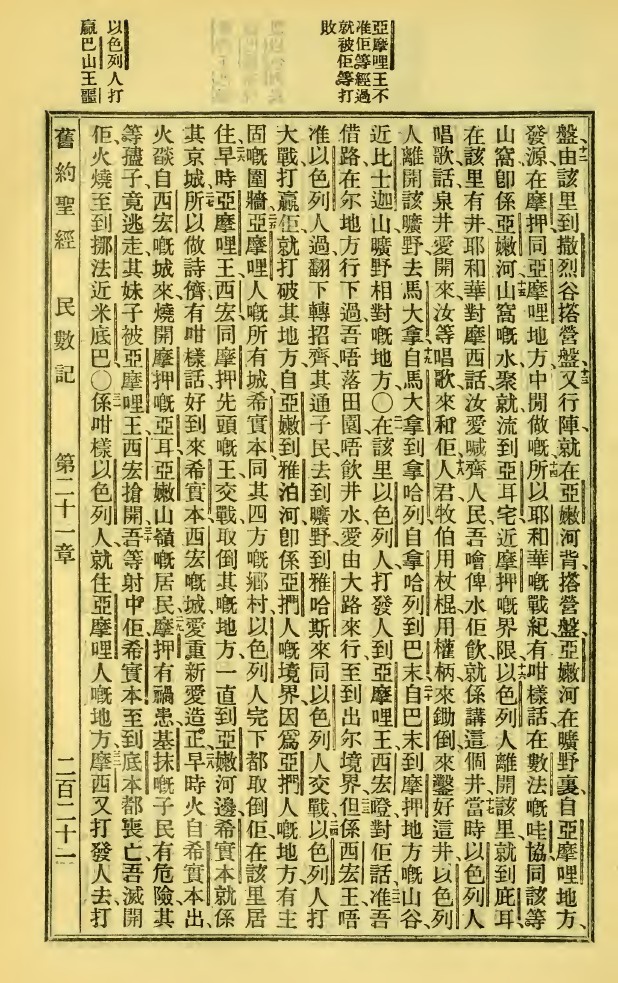 亞摩哩王不
准佢等經過
就被佢等打
敗
以色列人打
贏巴山王噩
盤、由該里到撒烈谷搭營盤、十三又行陣就在亞嫩河背搭營盤、亞嫩河在曠野裏、自亞摩哩地方、
發源、在摩押同亞摩哩地方中間做嘅、十四所以耶和華嘅戰紀有咁樣話、在數法嘅哇協同該等
山窩、卽係亞嫩河、十五山窩嘅水聚就流到亞耳宅近摩押嘅界限、十六以色列人離開該里就到庇耳、
在該里有井、耶和華對摩西話、汝愛喊齊人民、吾噲俾水佢飲、就係講這個井、十七當時以色列人
唱歌話、泉井愛開來、汝等唱歌來和佢、十八人君牧伯用杖棍用權柄來鋤倒來鑿好這井、以色列
人離開該曠野去馬大拿、十九自馬大拿到拿哈列、自拿哈列到巴末、二十自巴末到摩押地方嘅山谷、
近比士迦山曠野相對嘅地方、〇二一在該里以色列人打發人到亞摩哩王西宏嶝對佢話、二二准吾
借路在尔地方行下過、吾唔落田園、唔飲井水、愛由大路來行、至到出尔境界、二三但係西宏王唔
准以色列人過、翻下轉招齊其通子民去到曠野、到雅哈斯來同以色列人交戰、二四以色列人打
大戰打贏佢、就打破其地方、自亞嫩到雅泊河、卽係亞捫人嘅境界、因爲亞捫人嘅地方有主
固嘅圍牆、二五亞摩哩人嘅所有城、希實本同其四方嘅鄉村、以色列人完下都取倒佢、在該里居
住、二六早時亞摩哩王西宏同摩押先頭嘅王交戰、取倒其嘅地方、一直到亞嫩河邊、希實本就係
其京城、二七所以做詩儕有咁樣話、好到來希實本、西宏嘅城愛重新愛造正、二八早時火自希實本出、
火燄自西宏嘅城來、燒開摩押嘅亞耳、亞嫩山嶺嘅居民、二九摩押有禍患、基抹嘅子民有危險、其
等孻子竟逃走、其妹子被亞摩哩王西宏搶開、三十吾等射中佢、希實本至到底本都喪亡、吾滅開
佢、火燒至到挪法近米底巴、〇三一係咁樣以色列人就住亞摩哩人嘅地方、三二摩西又打發人去打
舊約聖經　民數記　第二十一章　二百二十一